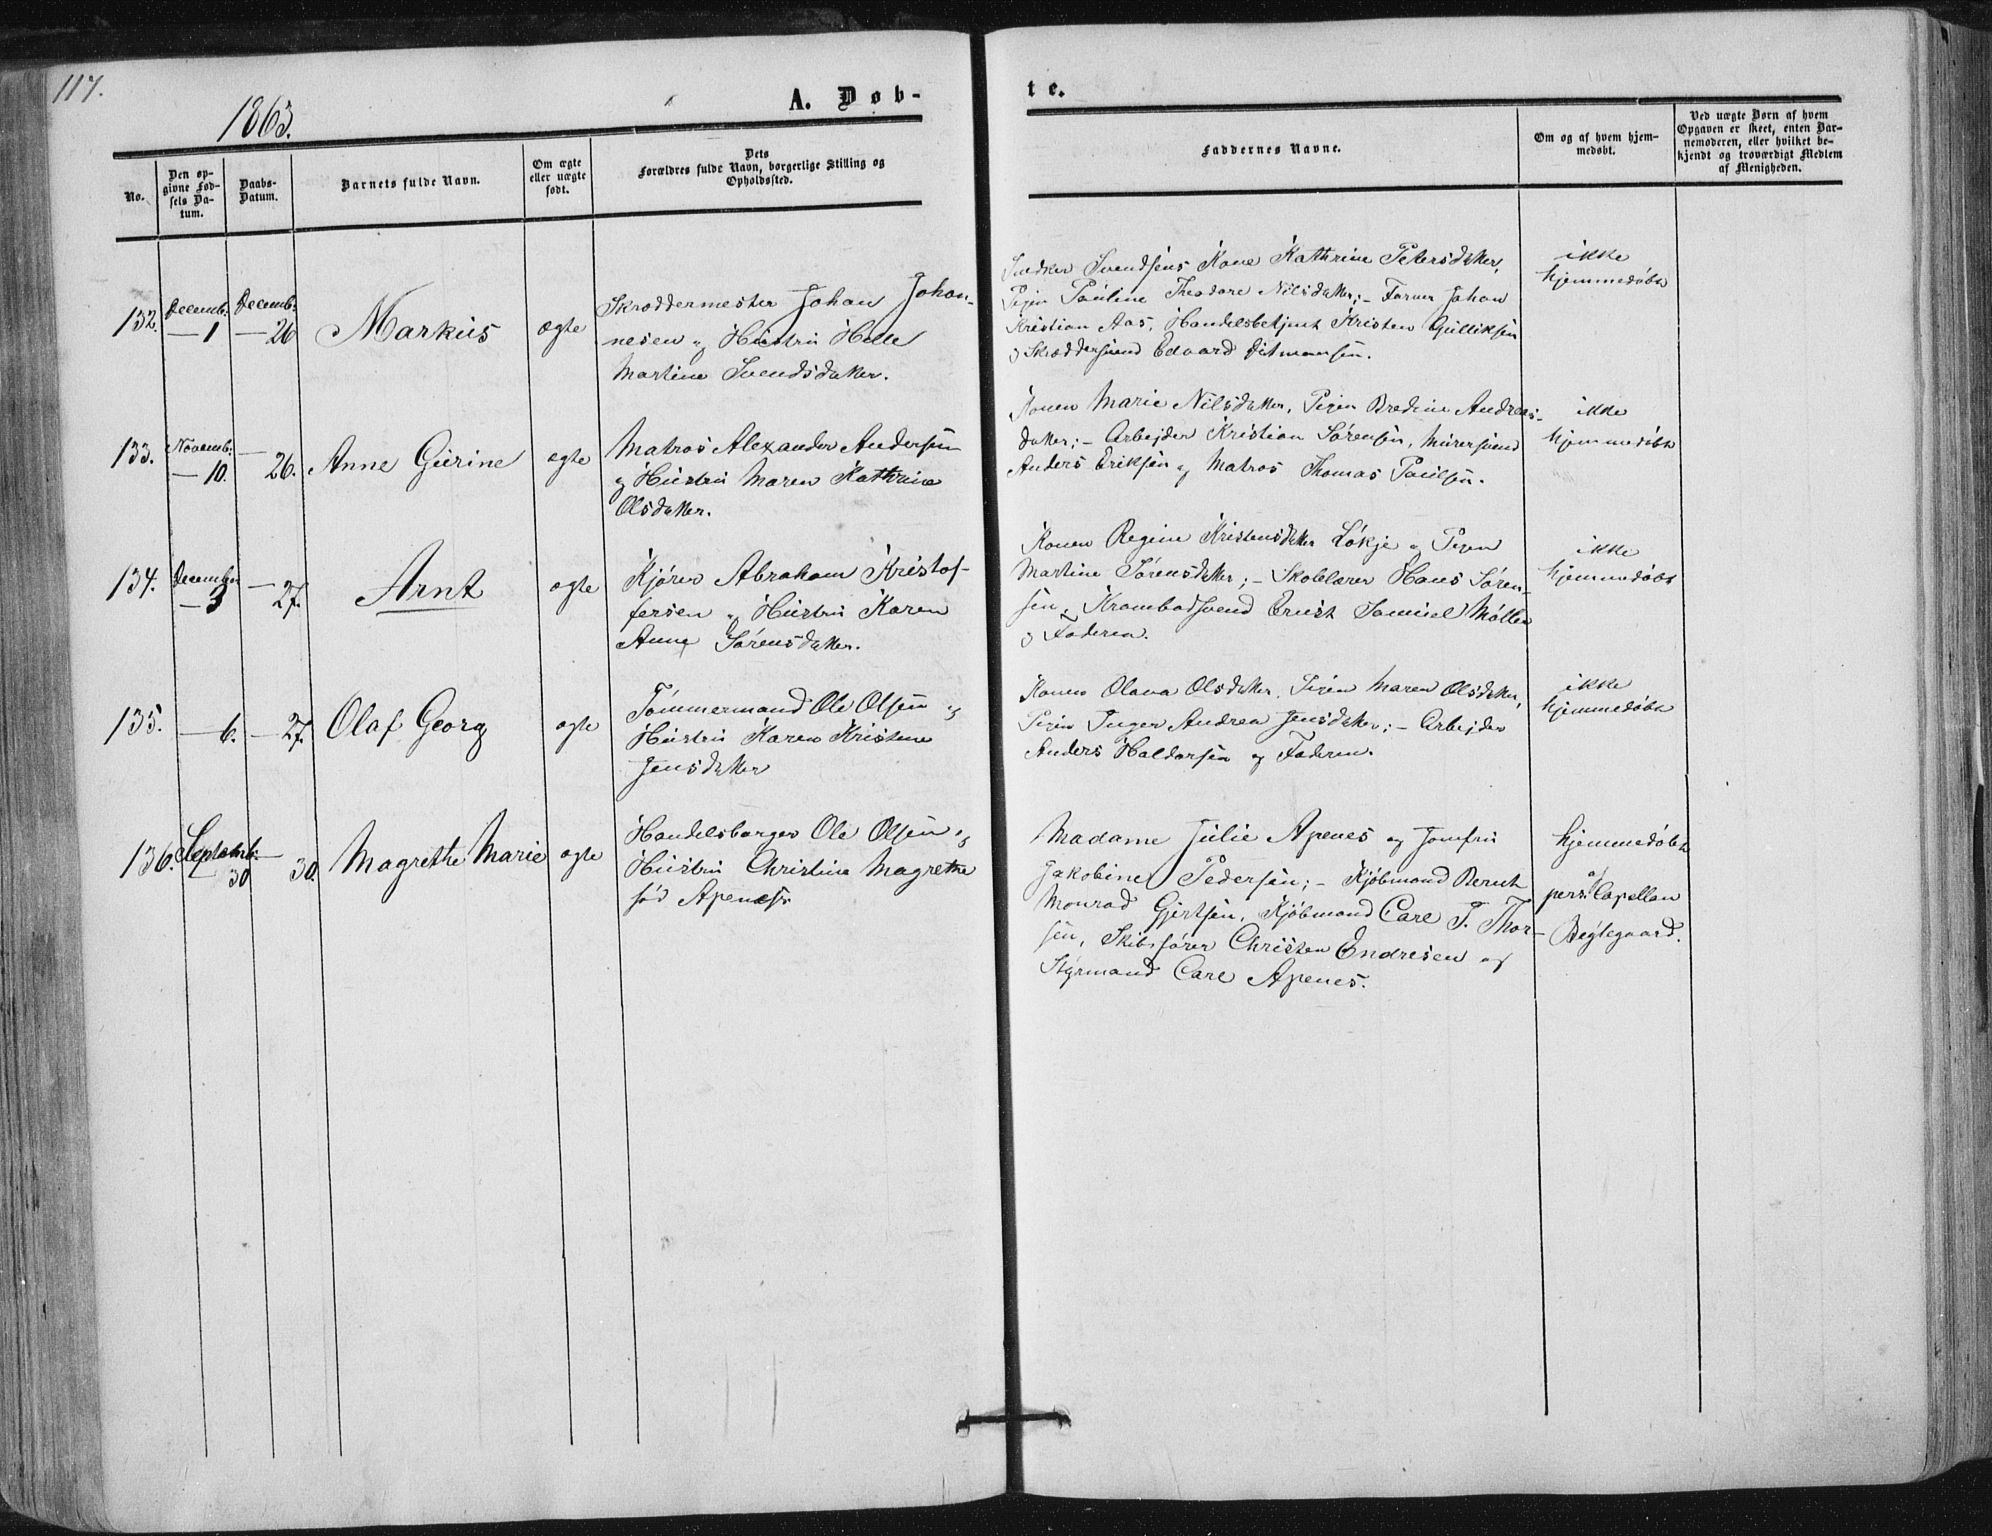 117.
1863.
A. Døb-
te.
No.
Den op-
givne Fød-
sels Da-
tum.
Daabs-
Datum.
Barnets fulde Navn.
Om ægte
eller uægte
født.
Dets
Forældres fulde Navn, borgerlige Stilling og
Opholdssted.
Faddernes Navne.
Om og af hvem hjem-
medøbt.
Ved uægte Børn af hvem
Opgaven er skeet, enten Bar-
nemoderen, eller hvilket be-
kjendt og troværdigt Medlem
af Menigheden.
132.
Decemb.
— 1
Decemb.
— 26
Markus
ægte
Skræddermester Johan Johan-
nesen og Hustru Helle
Martine Svendsdatter.
Snedker Svendsens Kone Kathrine Petersdatter,
Pigen Pauline Theodore Nilsdatter; - Farver Johan
Kristian Aas, Handelsbetjent Kristen Gulliksen
og Skræddersvend Edvard Ditmansen.
ikke
hjemmedøbt
133.
Novemb.
— 10.
— 26.
Anne Gurine
ægte
Matros Alexander Andersen
og Hustru Maren Kathrine
Olsdatter.
Konen Marie Nilsdatter, Pigen Bredine Andreas-
datter; - Arbejder Kristian Sørensen, Murersvend
Anders Eriksen og Matros Thomas Paulsen.
ikke
hjemmedøbt
134.
December
— 3
— 27.
Arnt
ægte
Kjører Abraham Kristof-
fersen og Hustru Karen
Anne Sørensdatter.
Konen Regine Kristensdatter Løkje og Pigen
Martine Sørensdatter; - Skolelærer Hans Søren-
sen, Krambodsvend Ernst Samuel Møller
og Faderen.
ikke
hjemmedøbt
135.
— 6.
— 27.
Olaf Georg
ægte
Tømmermand Ole Olsen og
Hustru Karen Kristine
Jensdatter
Konen Olava Olsdatter, Pigen Maren Olsdatter,
Pigen Inger Andrea Jensdatter; - Arbejder
Anders Haldorsen og Faderen.
ikke
hjemmedøbt
136.
Septemb.
30
— 30.
Magrethe Marie
ægte
Handelsborger Ole Olsen og
Hustru Christine Magrethe
fød Apenes
Madame Julie Apenes og Jomfru
Jakobine Pedersen; - Kjøbmand Bernt
Monrad Gjertsen, Kjøbmand Carl P. Thor-
sen, Skibsfører Christen Endresen og
Styrmand Carl Apenes.
hjemmedøbt
af
pers. Capellan
Bøgtegaard.